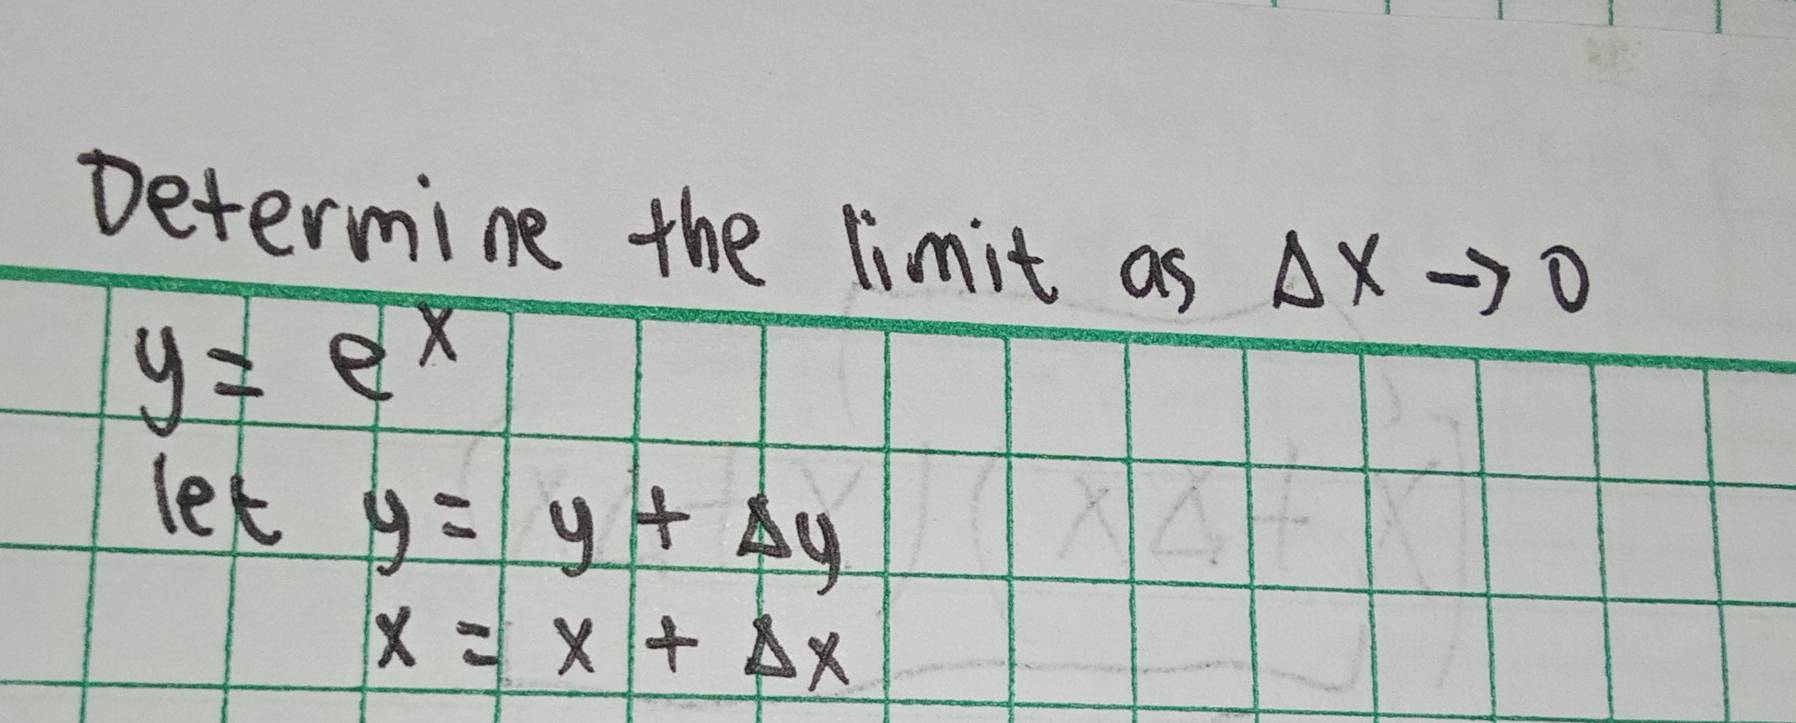 Determine the limit as Δx → 0
y = e^x
let y = y + Δy
x = x + Δx